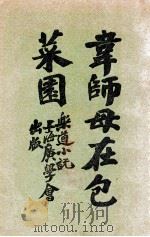 韋師母在包
菜園
樂道小說
上海廣學會
出版